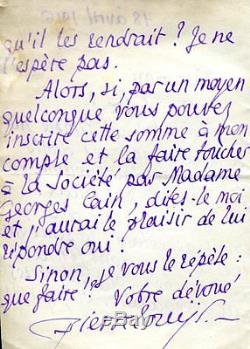 qu'il les rendrait ? Je ne
l'espère pas.
Alors, si, par un moyen
quelconque vous pouvez
inscrire cette somme à mon
compte et la faire toucher
à la Société par Madame
Georges Cain, dites-le moi
et j'aurai le plaisir de lui
répondre oui.
Sinon, je vous le répète :
que faire ? Votre dévoué
Pierre Louÿs